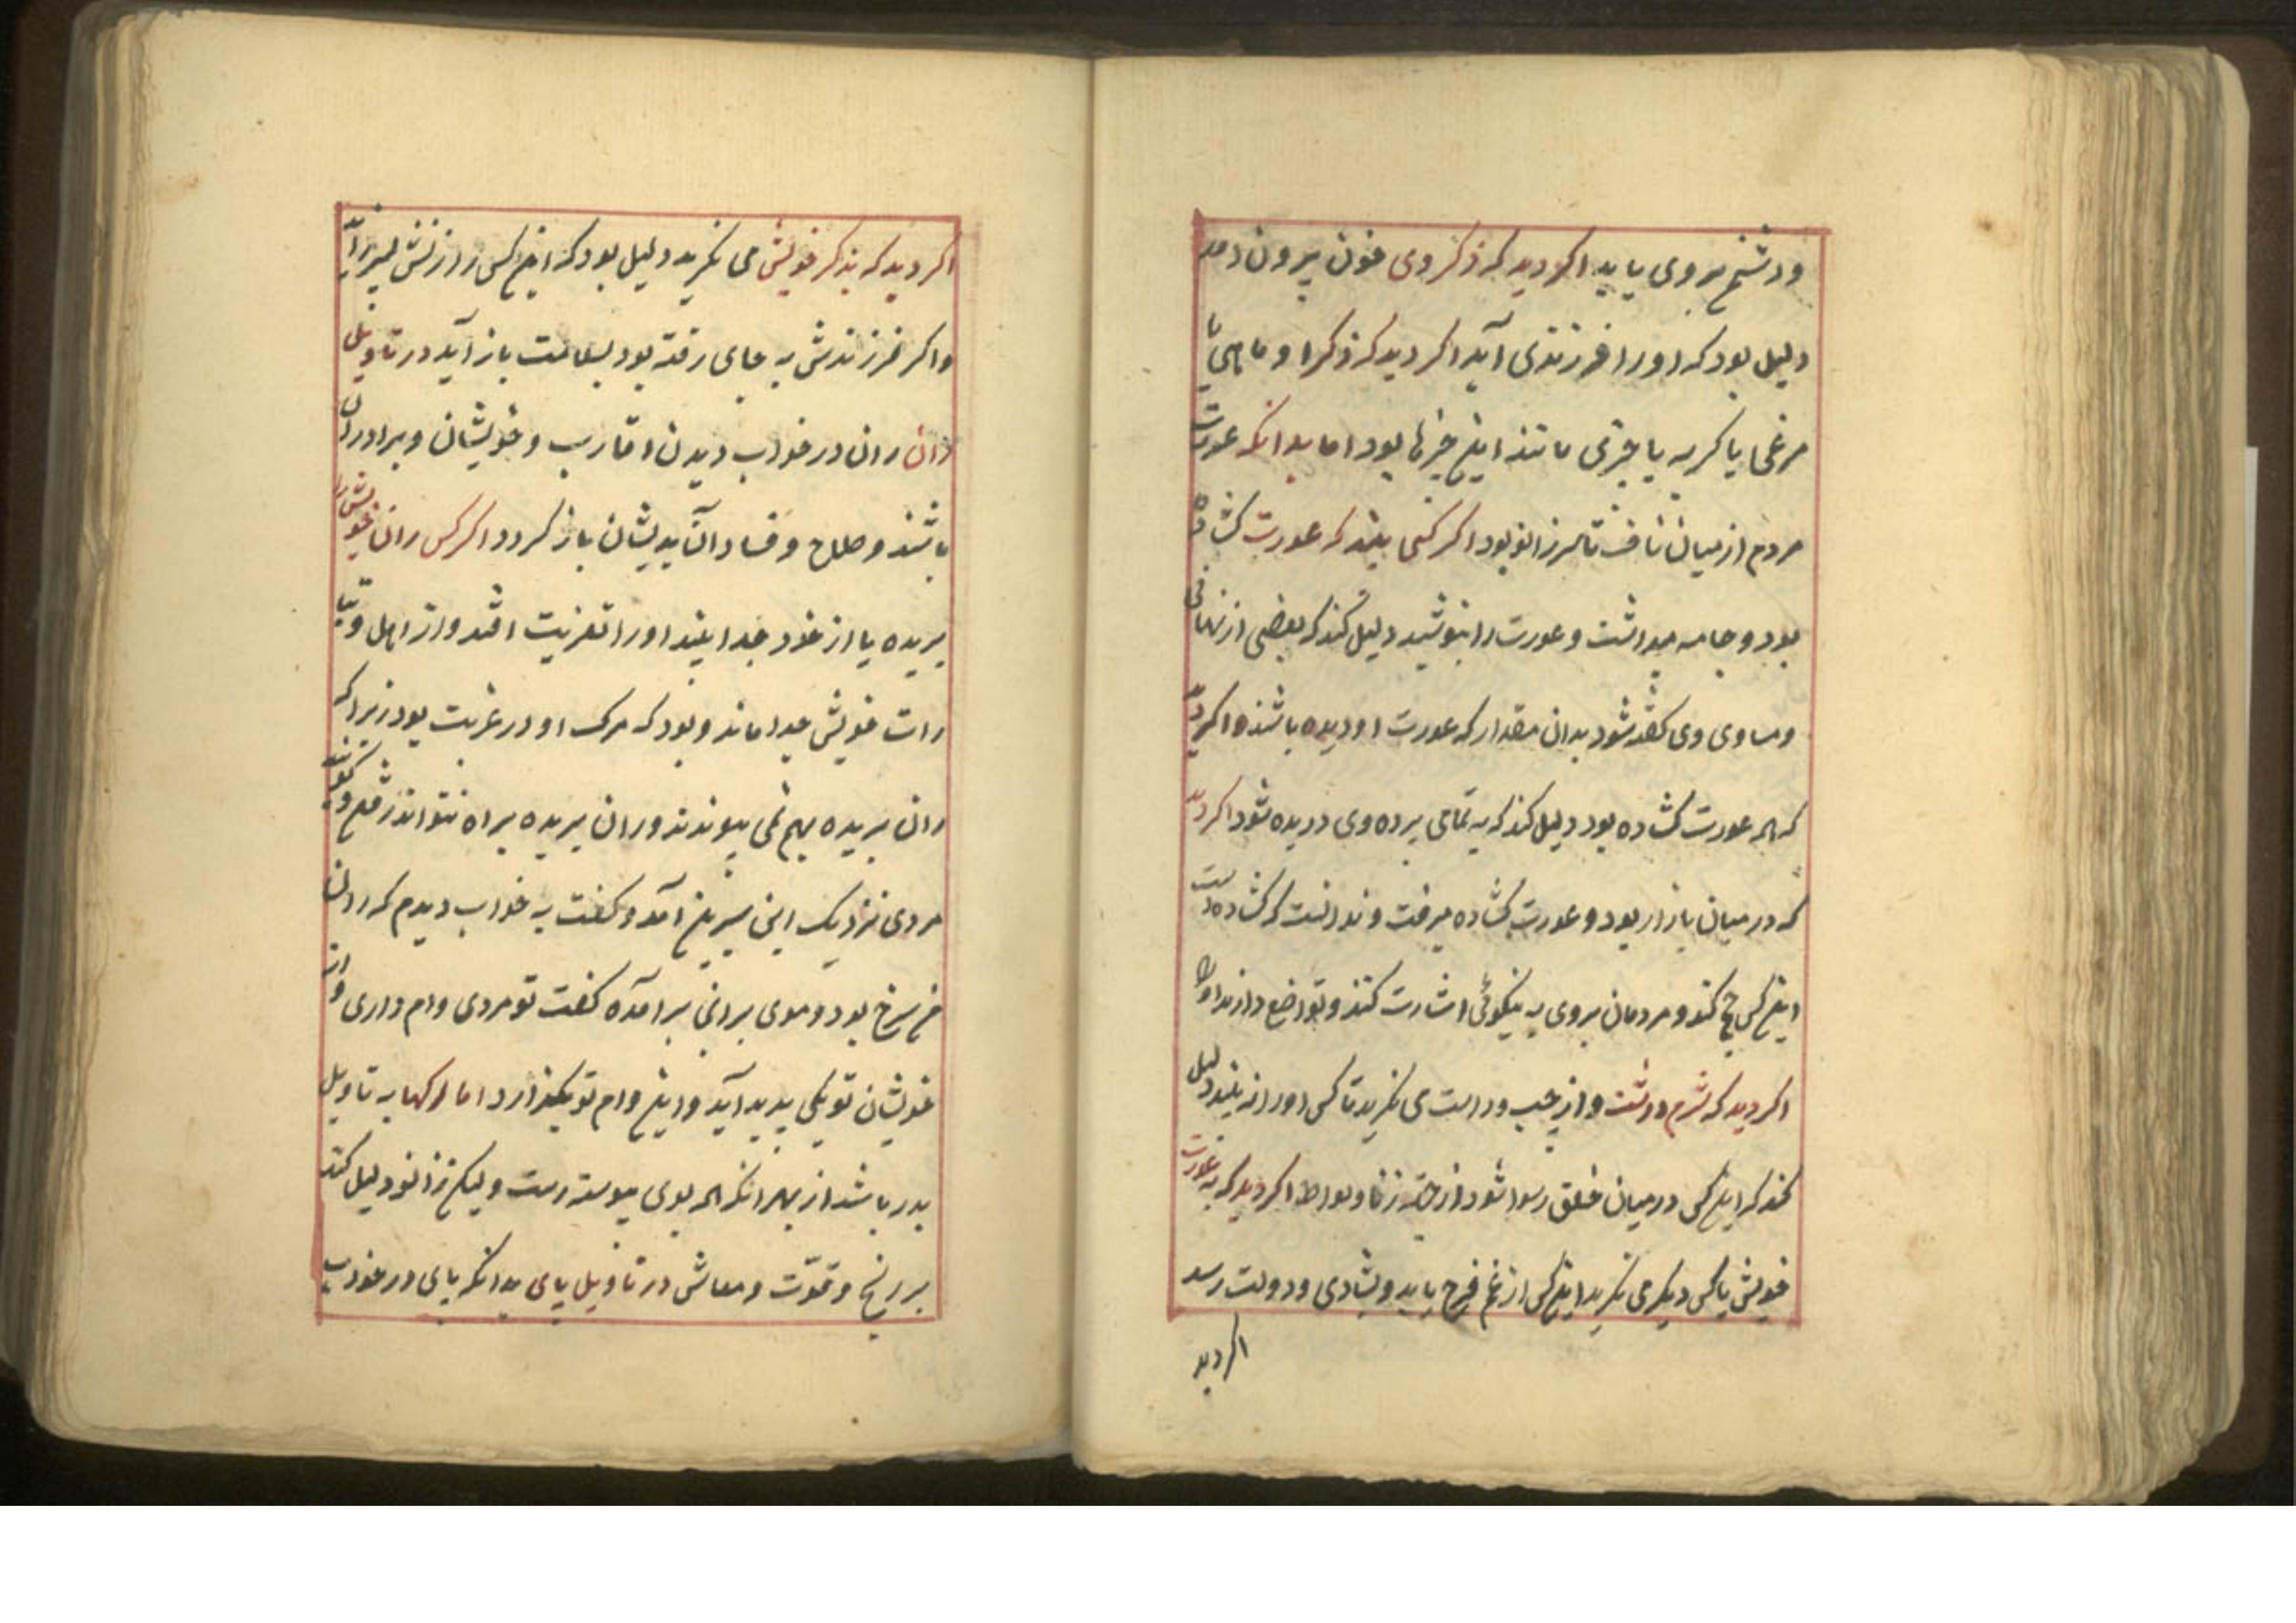 ودشمن بروی یابد اکر دید که ذکر وی خون بیرون آمد
دلیل بود که او را فرزندی آید اکر دید که ذکر او ماهی یا
مرغی یا کربه یا چیزی مانند این چیزها بود اما بدانکه عورت
مردم از میان ناف تا سر زانو بود اکر کسی بیند که عورت کشاده
بود و جامه میداشت و عورت را بپوشید دلیل کند که بعضی از نهانی
ومساوی وی کفته شود بدان مقدار که عورت او دیده باشند و اکر دید
که همه عورت کشاده بود دلیل کند که به تمامی پرده وی دریده شود اکر دید
که در میان بازار بود و عورت کشاده میرفت و ندانست که کشاده است
این کس حج کند و مردمان بروی به نیکوئی اشارت کنند و تواضع دارند او را
اکر دید که شرم داشت و از چپ و راست می نکرید تا کس او را نه بیند دلیل
کند که این کس در میان خلق رسوا شود از جهة زنا و لواط اکر دید که به عورت
خویش یا کس دیکر می نکرید این کس از غم فرج یابد و بشادی و دولت رسد
اکر دید
اکر دید که بذکر خویش می نکرید دلیل بود که این کس را از زنش پسر آید
واکر فرزندش به جای رفته بود بسلامت باز آید در تاویل
ران ران در خواب دیدن اقارب و خویشان و برادران
باشند و صلاح و فساد آن بدیشان باز کردد اکر کس ران خویش را
بریده یا از خود جدا بیند او را تعزیت افتد و از اهل و
خویش جدا ماند و بود که مرک او در غربت بود زیرا که
ران بریده بهم نمی پیوندند و ران بریده براه نتواند رفت و کویند
مردی نزدیک ابن سیرین آمد و کفت به خواب دیدم که ران
من سرخ بود و موی برانی برآمده کفت تو مردی وام داری و از
خویشان تو یکی پدید آید و این وام تو بکذارد اما رکها به تاویل
پدر باشد از بهر انکه همه بوی پیوسته است ولیکن زانو دلیل کند
بر رنج و قوّت و معاش در تاویل پای بدانکه پای در خواب